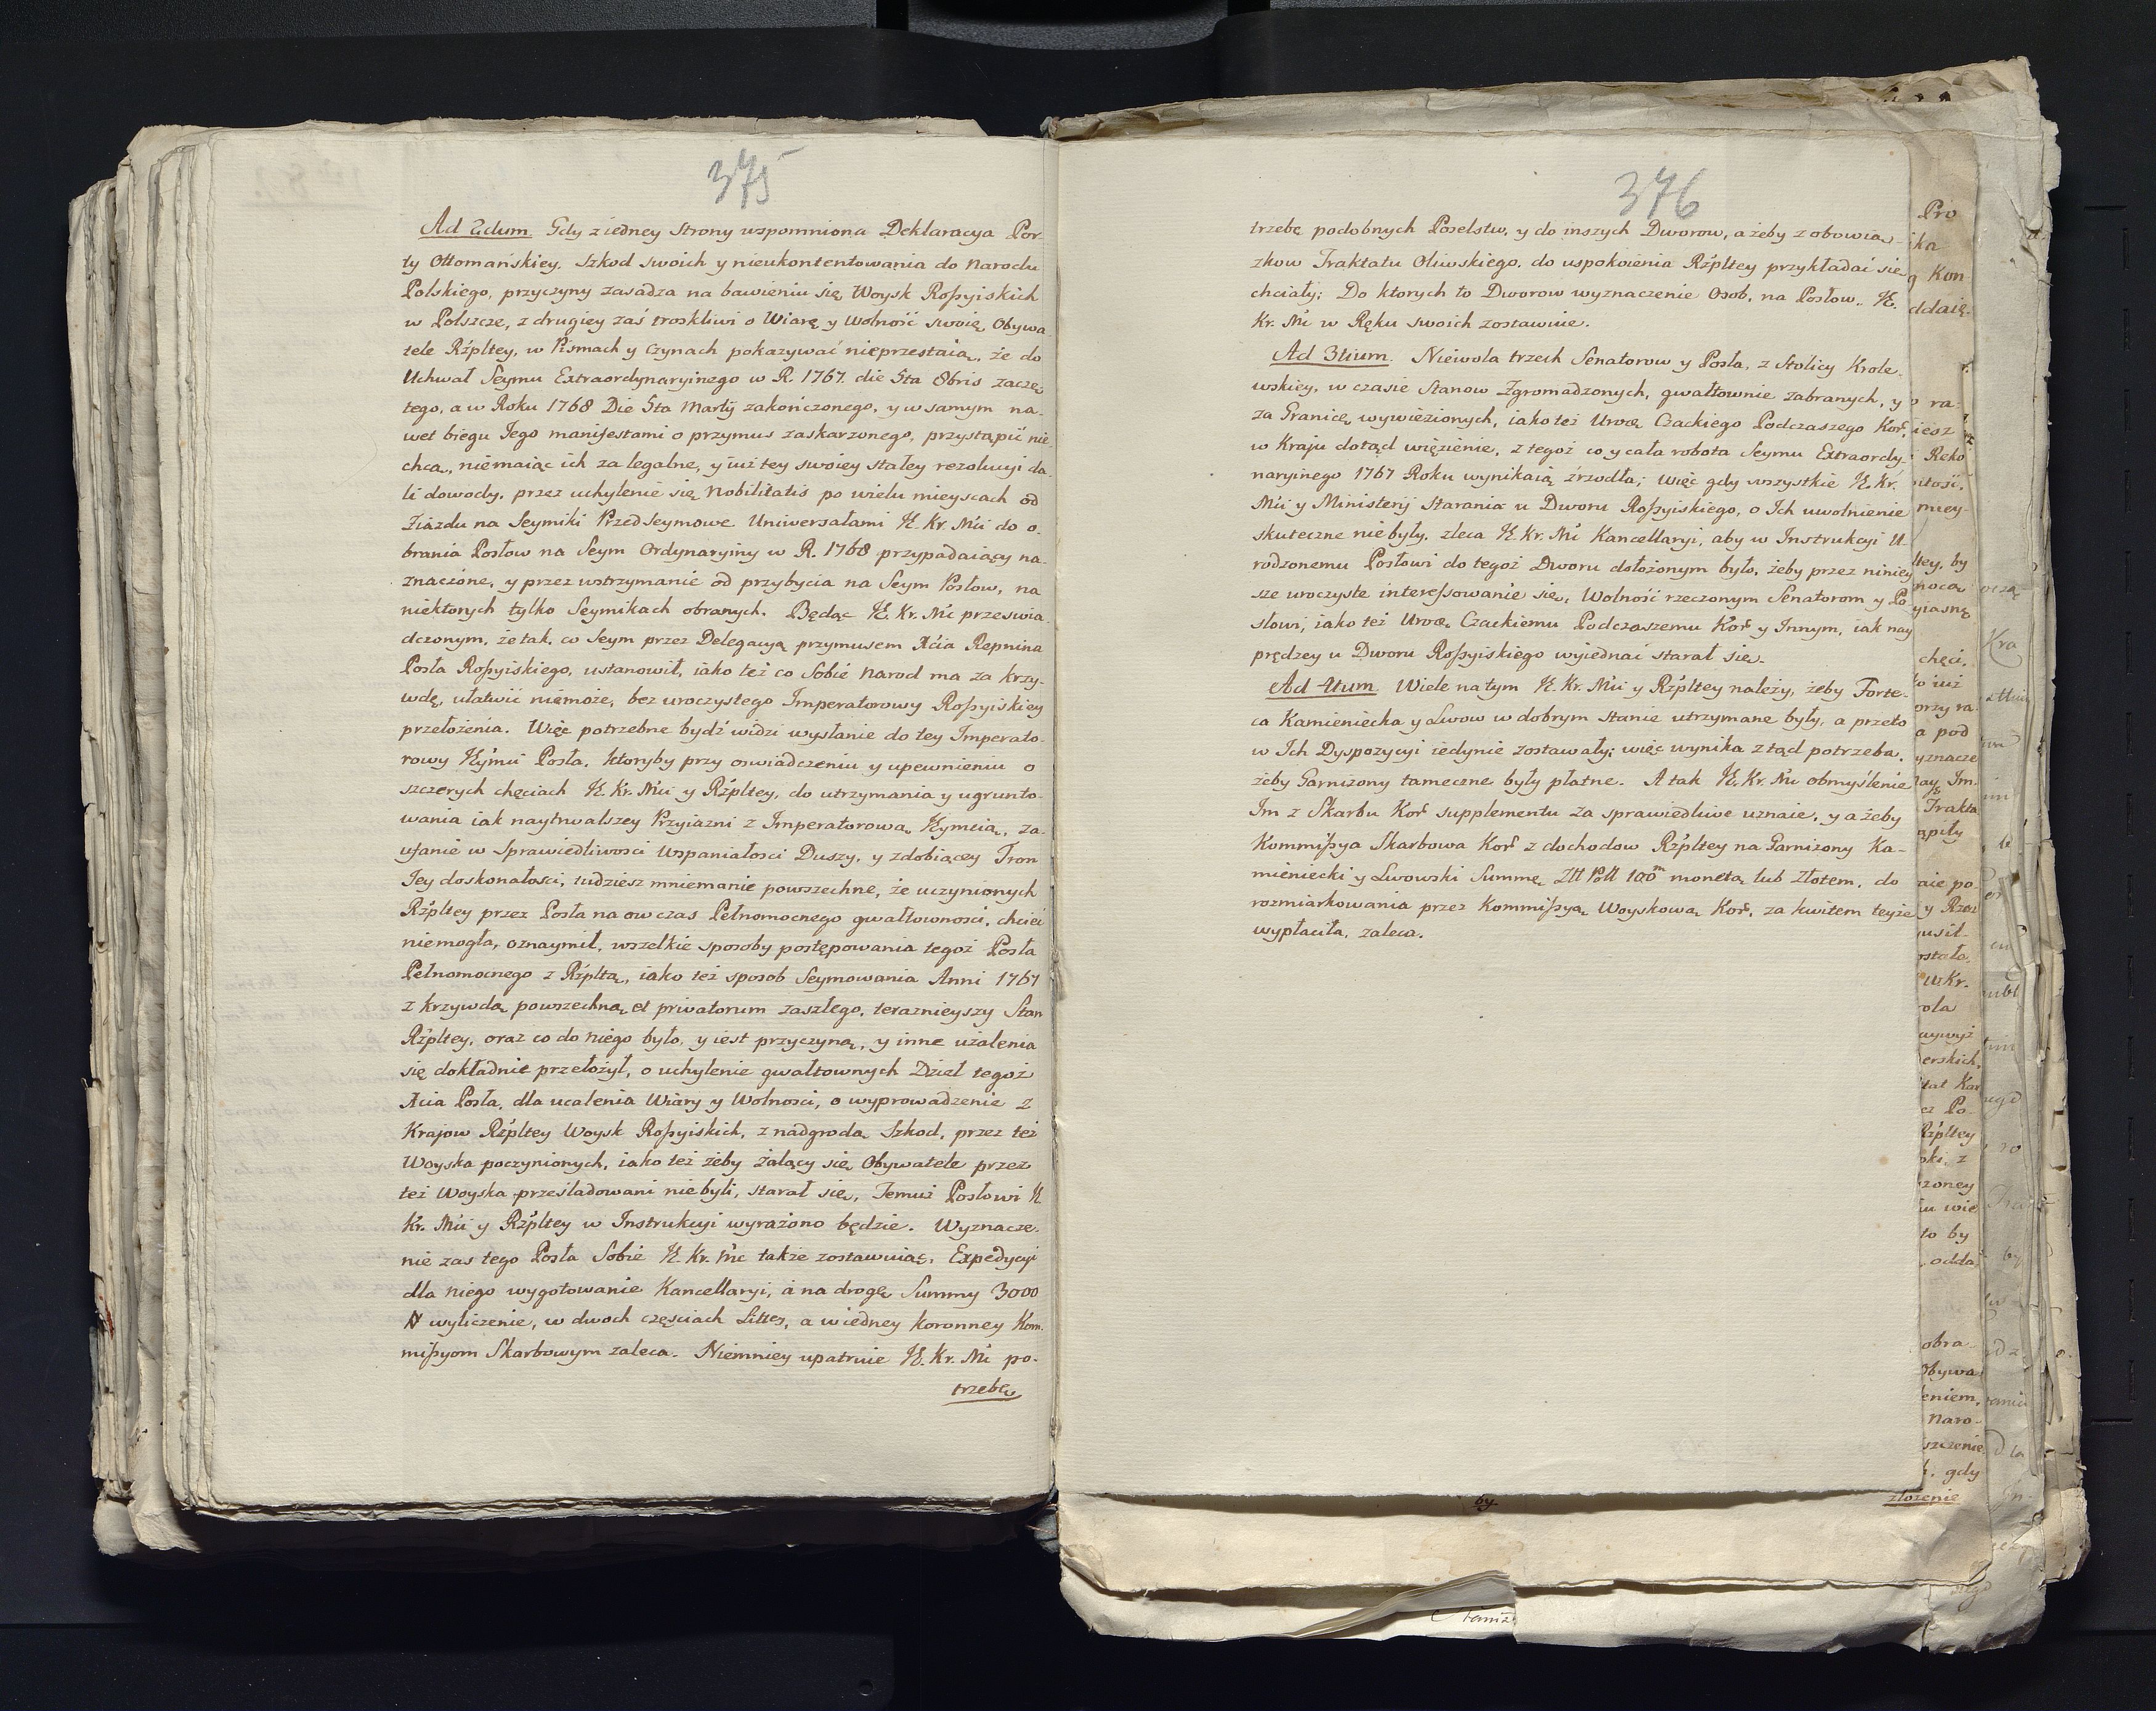 375
Ad 2dum. Gdy z iedney Strony wspomniona Deklaracya Por-
ty Ottomańskiey, szkod swoich y nieukontentowania do Narodu
Polskiego, przyczyny zasadza na bawieniu się Woysk Roſsyiskich
w Polszcze, z drugiey zaś troskliwi o Wiarę y Wolność swoię Obywa-
tele Rżpltey, w Pismach y Czynach pokazywać nieprzestaią, że do
Uchwał Seymu Extraordynaryinego w R. 1767. die 5ta 8bris zaczę-
tego, a w Roku 1768 Die 5ta Martij zakończonego, y w samym na-
wet biegu Jego manifestami o przymus zaskarzonego, przystąpić nie
chcą, niemaiąc ich za legalne, y iuż tey swoiey stałey rezolucyi da-
li dowody, przez uchylenie się Nobilitatis po wielu mieyscach od
Ziazdu na Seymiki PrzedSeymowe Uniwersałami JK. Kr. Mci do o-
brania Posłow na Seym Ordynaryiny w R. 1768 przypadaiący na-
znaczone, y przez wstrzymanie od przybycia na Seym Posłow, na
niektorych tylko Seymikach obranych. Będąc JK. Kr. Mć przeswia-
dczonym, że tak, co Seym przez Delegacyą przymusem Xcia Repnina
Posła Roſsyiskiego, ustanowił, iako też co Sobie Narod ma za krzy-
wdę, ułatwić niemoże, bez uroczystego Imperatorowy Roſsyiskiey
przełożenia. Więc potrzebne bydź widzi wysłanie do tey Imperato-
rowy Kymci Posła, ktoryby przy oswiadczeniu y upewnieniu o
szczerych chęciach JK. Kr. Mci y Rżpltey, do utrzymania y ugrunto-
wania iak naytrwalszey Przyiazni z Imperatorową Kymcią, za-
ufanie w Sprawiedliwosci Wspaniałosci Duszy, y zdobiącey Tron
Jey doskonałosci, tudziesz mniemanie powszechne, że uczynionych
Rżpltey przez Posła na ow czas Pełnomocnego gwałtownosci, chcieć
niemogła, oznaymił, wszelkie sposoby postępowania tegoż Posła
Pełnomocnego z Rżpltą, iako też sposob Seymowania Anni 1767
z krzywdą powszechną et privatorum zaszłego, teraznieyszy Stan
Rżpltey, oraz co do niego było, y iest przyczyną, y inne użalenia
się dokładnie przełożył, o uchylenie gwałtownych Dzieł tegoż
Xcia Posła, dla ucalenia Wiary y Wolnosci, o wyprowadzenie z
Krajow Rżpltey Woysk Roſsyiskich, z nadgrodą Szkod, przez też
Woyska poczynionych, iako też żeby żalący się Obywatele przez
też Woyska prześladowani niebyli, starał się, Temuż Posłowi JK.
Kr. Mci y Rżpltey w Instrukcyi wyrażono będzie. Wyznacze-
nie zas tego Posła Sobie JK. Kr. Mć także zostawuiąc, Expedycyi
dla niego wygotowanie Kancellaryi, á na drogę Summy 3000
# wyliczenie, w dwoch częsciach Litter, a w iedney koronney Kom-
miſsyom Skarbowym zaleca. Niemniey upatruie JK. Kr. Mć po-
trzebę
376
trzebę podobnych Poselstw, y do inszych Dworow, ażeby z obowią-
zkow Traktatu Oliwskiego, do uspokoienia Rżpltey przykładać się
chciały; Do ktorych to Dworow wyznaczenie Osob, na Posłow, JK.
Kr. Mć w Ręku swoich zostawuie.
Ad 3tium. Niewola trzech Senatorow y Posła, z Stolicy Krole-
wskiey, w czasie Stanow Zgromadzonych, gwałtownie zabranych, y
za Granicę wywieżionych, iako też Urogo Czackiego Podczaszego Kor,
w Kraju dotąd więzienie, z tegoż co y cała robota Seymu Extraordy-
naryinego 1767 Roku wynikaią źrzodła; więc gdy wszystkie JK. Kr.
Mci y Ministerij Starania u Dworu Roſsyiskiego, o Ich uwolnienie
skuteczne niebyły, zleca JK. Kr. Mć Kancellaryi, aby w Instrukcyi U-
rodzonemu Posłowi do tegoż Dworu dołożonym było, żeby przez niniey-
sze uroczyste intereſsowanie się, Wolność rzeczonym Senatorom y Po-
słowi, iako też Uromu Czackiemu Podczaszemu Kor y Innym, iak nay
prędzey u Dworu Roſsyiskiego wyiednać starał się.
Ad 4tum. Wiele na tym JK. Kr. Mci y Rżpltey należy, żeby Forte-
ca Kamieniecka y Lwow w dobrym stanie utrzymane były, a przeto
w Ich Dyspozycyi iedynie zostawały; więc wynika z tąd potrzeba,
żeby Garnizony tameczne były płatne. A tak JK. Kr. Mć obmyślenie
Im z Skarbu Kor supplementu za sprawiedliwe uznaie, y ażeby
Kommiſsya Skarbowa Kor z dochodow Rżpltey na Garnizony Ka-
mieniecki y Lwowski Summę Złł Poll 100m monetą lub Złotem, do
rozmiarkowania przez Kommiſsyą Woyskową Kor, za kwitem teyże
wypłaciła, zaleca.
by
złożenie